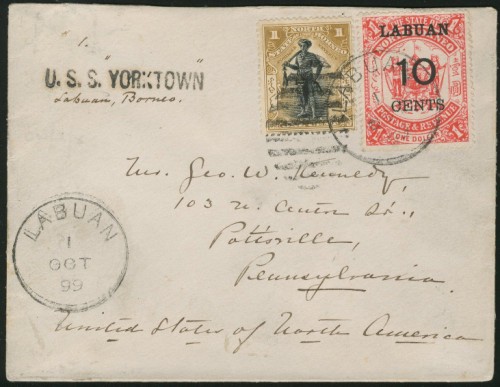 1.
U.S.S. "YORKTOWN"
Labuan, Borneo.
1 1
NORTH
STATE OF BORNEO
THE STATE OF
NORTH BORNEO
LABUAN
10
CENTS
POSTAGE & REVENUE
ONE DOLLAR
LABUAN
Mr. Geo. W. Kennedy,
103 N. Centre St.,
Pottsville,
Pennsylvania.
United States of North America
LABUAN
1
OCT
99